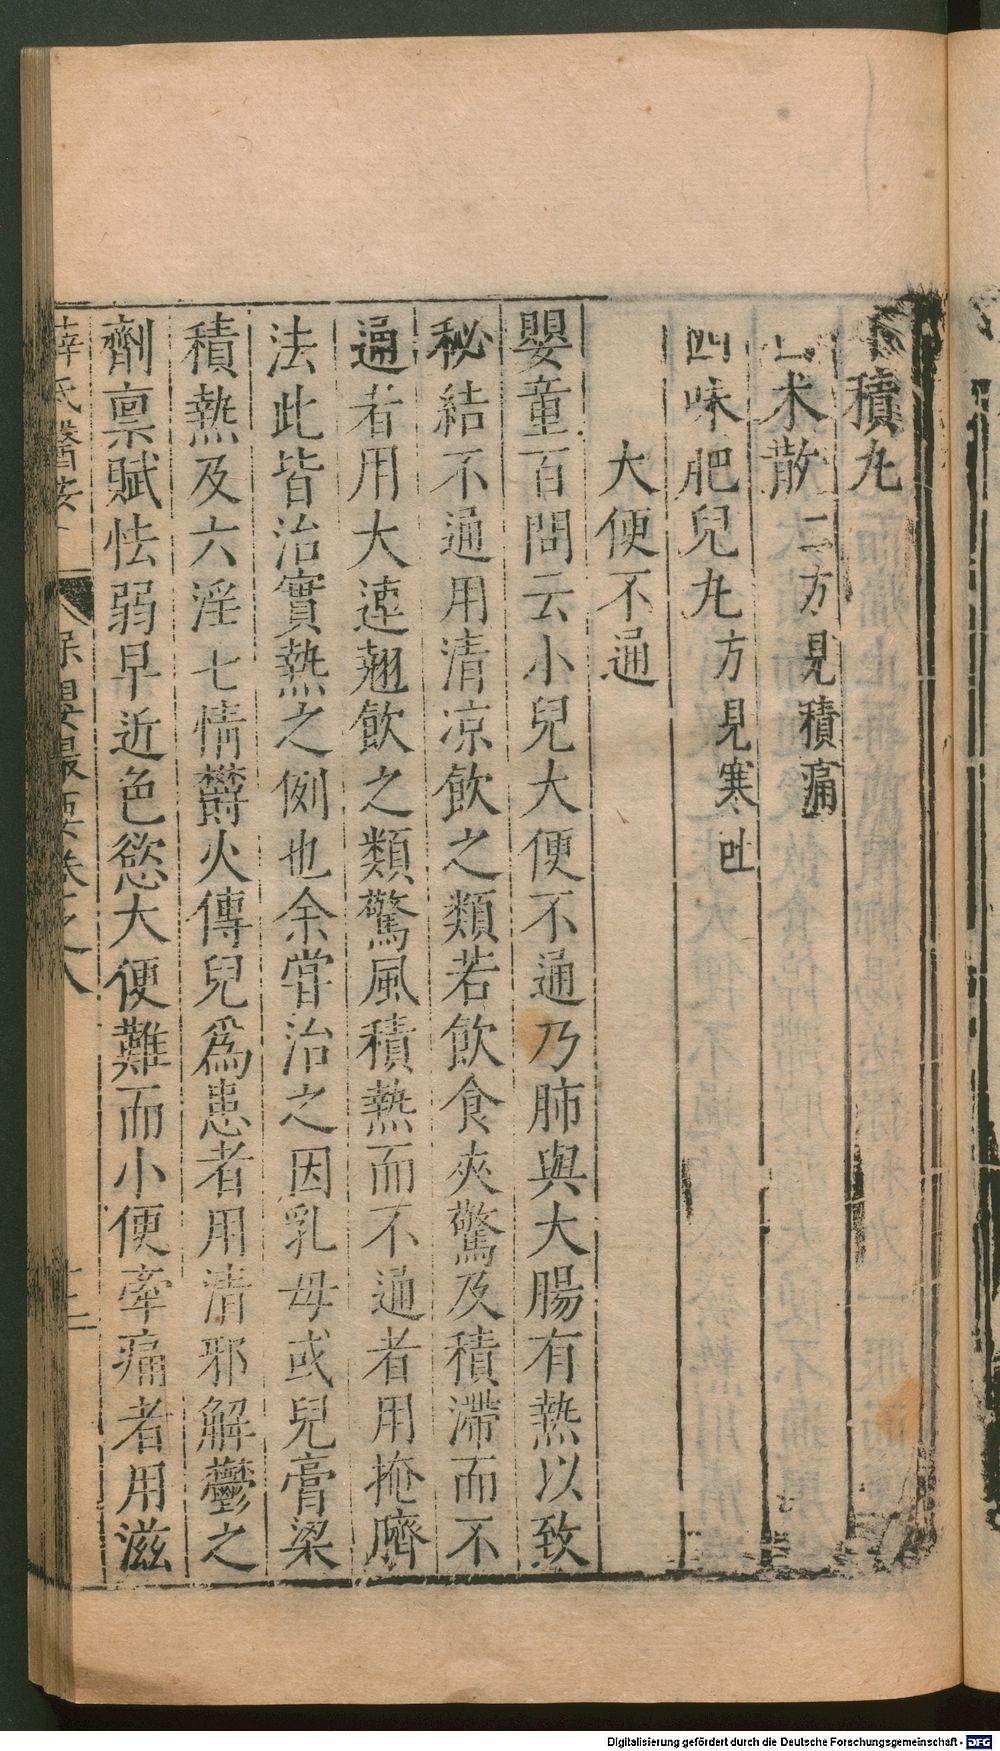 積丸
朮散二方見積痛
四味肥兒丸方見寒吐
大便不通
嬰童百問云小兒大便不通乃肺與大腸有熱以致
秘結不通用清凉飲之類若飲食夾驚及積滯而不
通者用大連翹飲之類驚風積熱而不通者用掩臍
法此皆治實熱之例也余嘗治之因乳母或兒膏粱
積熱及六淫七情欝火傳兒爲患者用清邪解鬱之
劑稟賦怯弱早近色慾大便難而小便牽痛者用滋
薛氏醫按 保嬰最要卷之八 十二
Digitalisierung gefördert durch die Deutsche Forschungsgemeinschaft - DFG